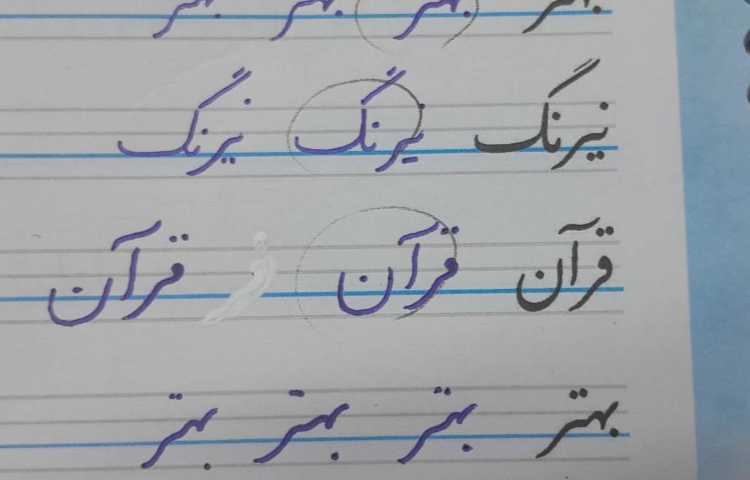 بهتر بهتر بهتر بهتر
نیرنگ نیرنگ نیرنگ
قرآن قرآن قرآن
بهتر بهتر بهتر بهتر